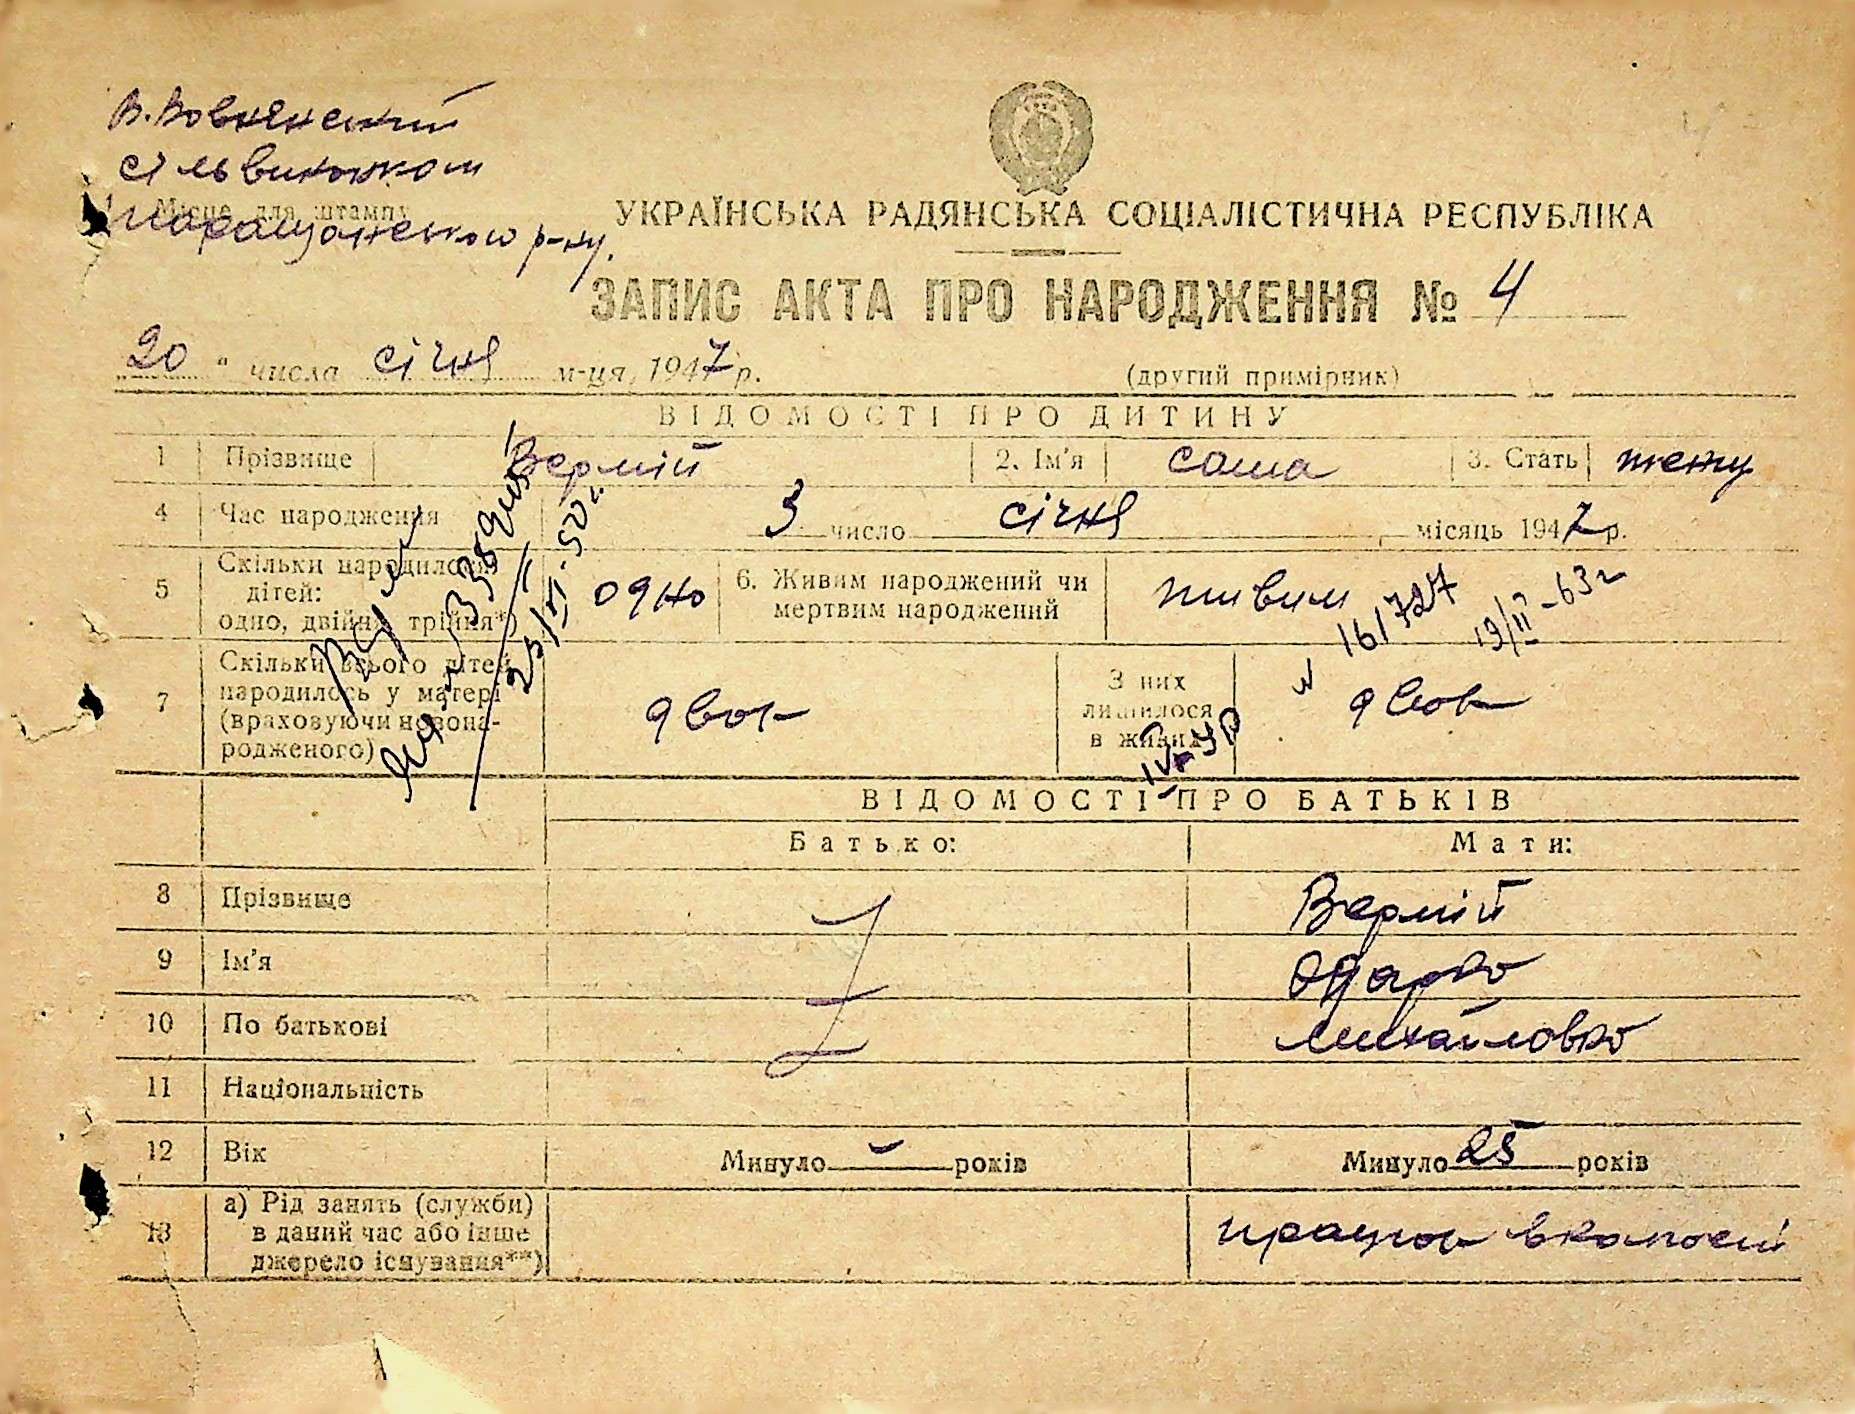 В. Вовнянський
сільвиконком
Місце для штампу
Таращанського р-ну.
УКРАЇНСЬКА РАДЯНСЬКА СОЦІАЛІСТИЧНА РЕСПУБЛІКА
ЗАПИС АКТА ПРО НАРОДЖЕННЯ № 4
„20“ числа січня м-ця, 1947 р.
(другий примірник)
ВІДОМОСТІ ПРО ДИТИНУ
1 Прізвище Вермій 2. Ім'я Саша 3. Стать
4 Час народження 3 число січня місяць 1947 р.
5 Скільки народилося дітей: одно, двійня, трійня*) одно 6. Живим народжений чи мертвим народжений живим
16/727
19/II-63 г
25/VI-50
7 Скільки всього дітей народилось у матері (враховуючи новонародженого) двоє З них лишилося в живих двоє
IV-УР
ВІДОМОСТІ ПРО БАТЬКІВ
Батько: Мати:
8 Прізвище Вермій
9 Ім'я Одарка
10 По батькові Михайловка
11 Національність
12 Вік Минуло – років Минуло 25 років
13 а) Рід занять (служби) в даний час або інше джерело існування**) працює в колгоспі